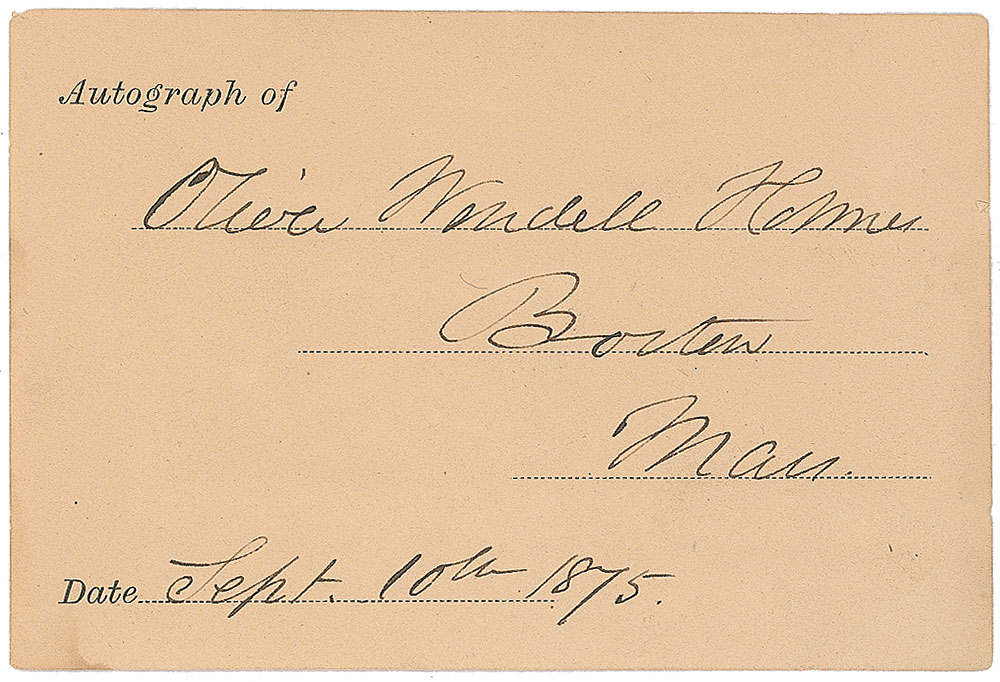 Autograph of
Oliver Wendell Holmes
Boston
Mass.
Date Sept. 10th 1875.